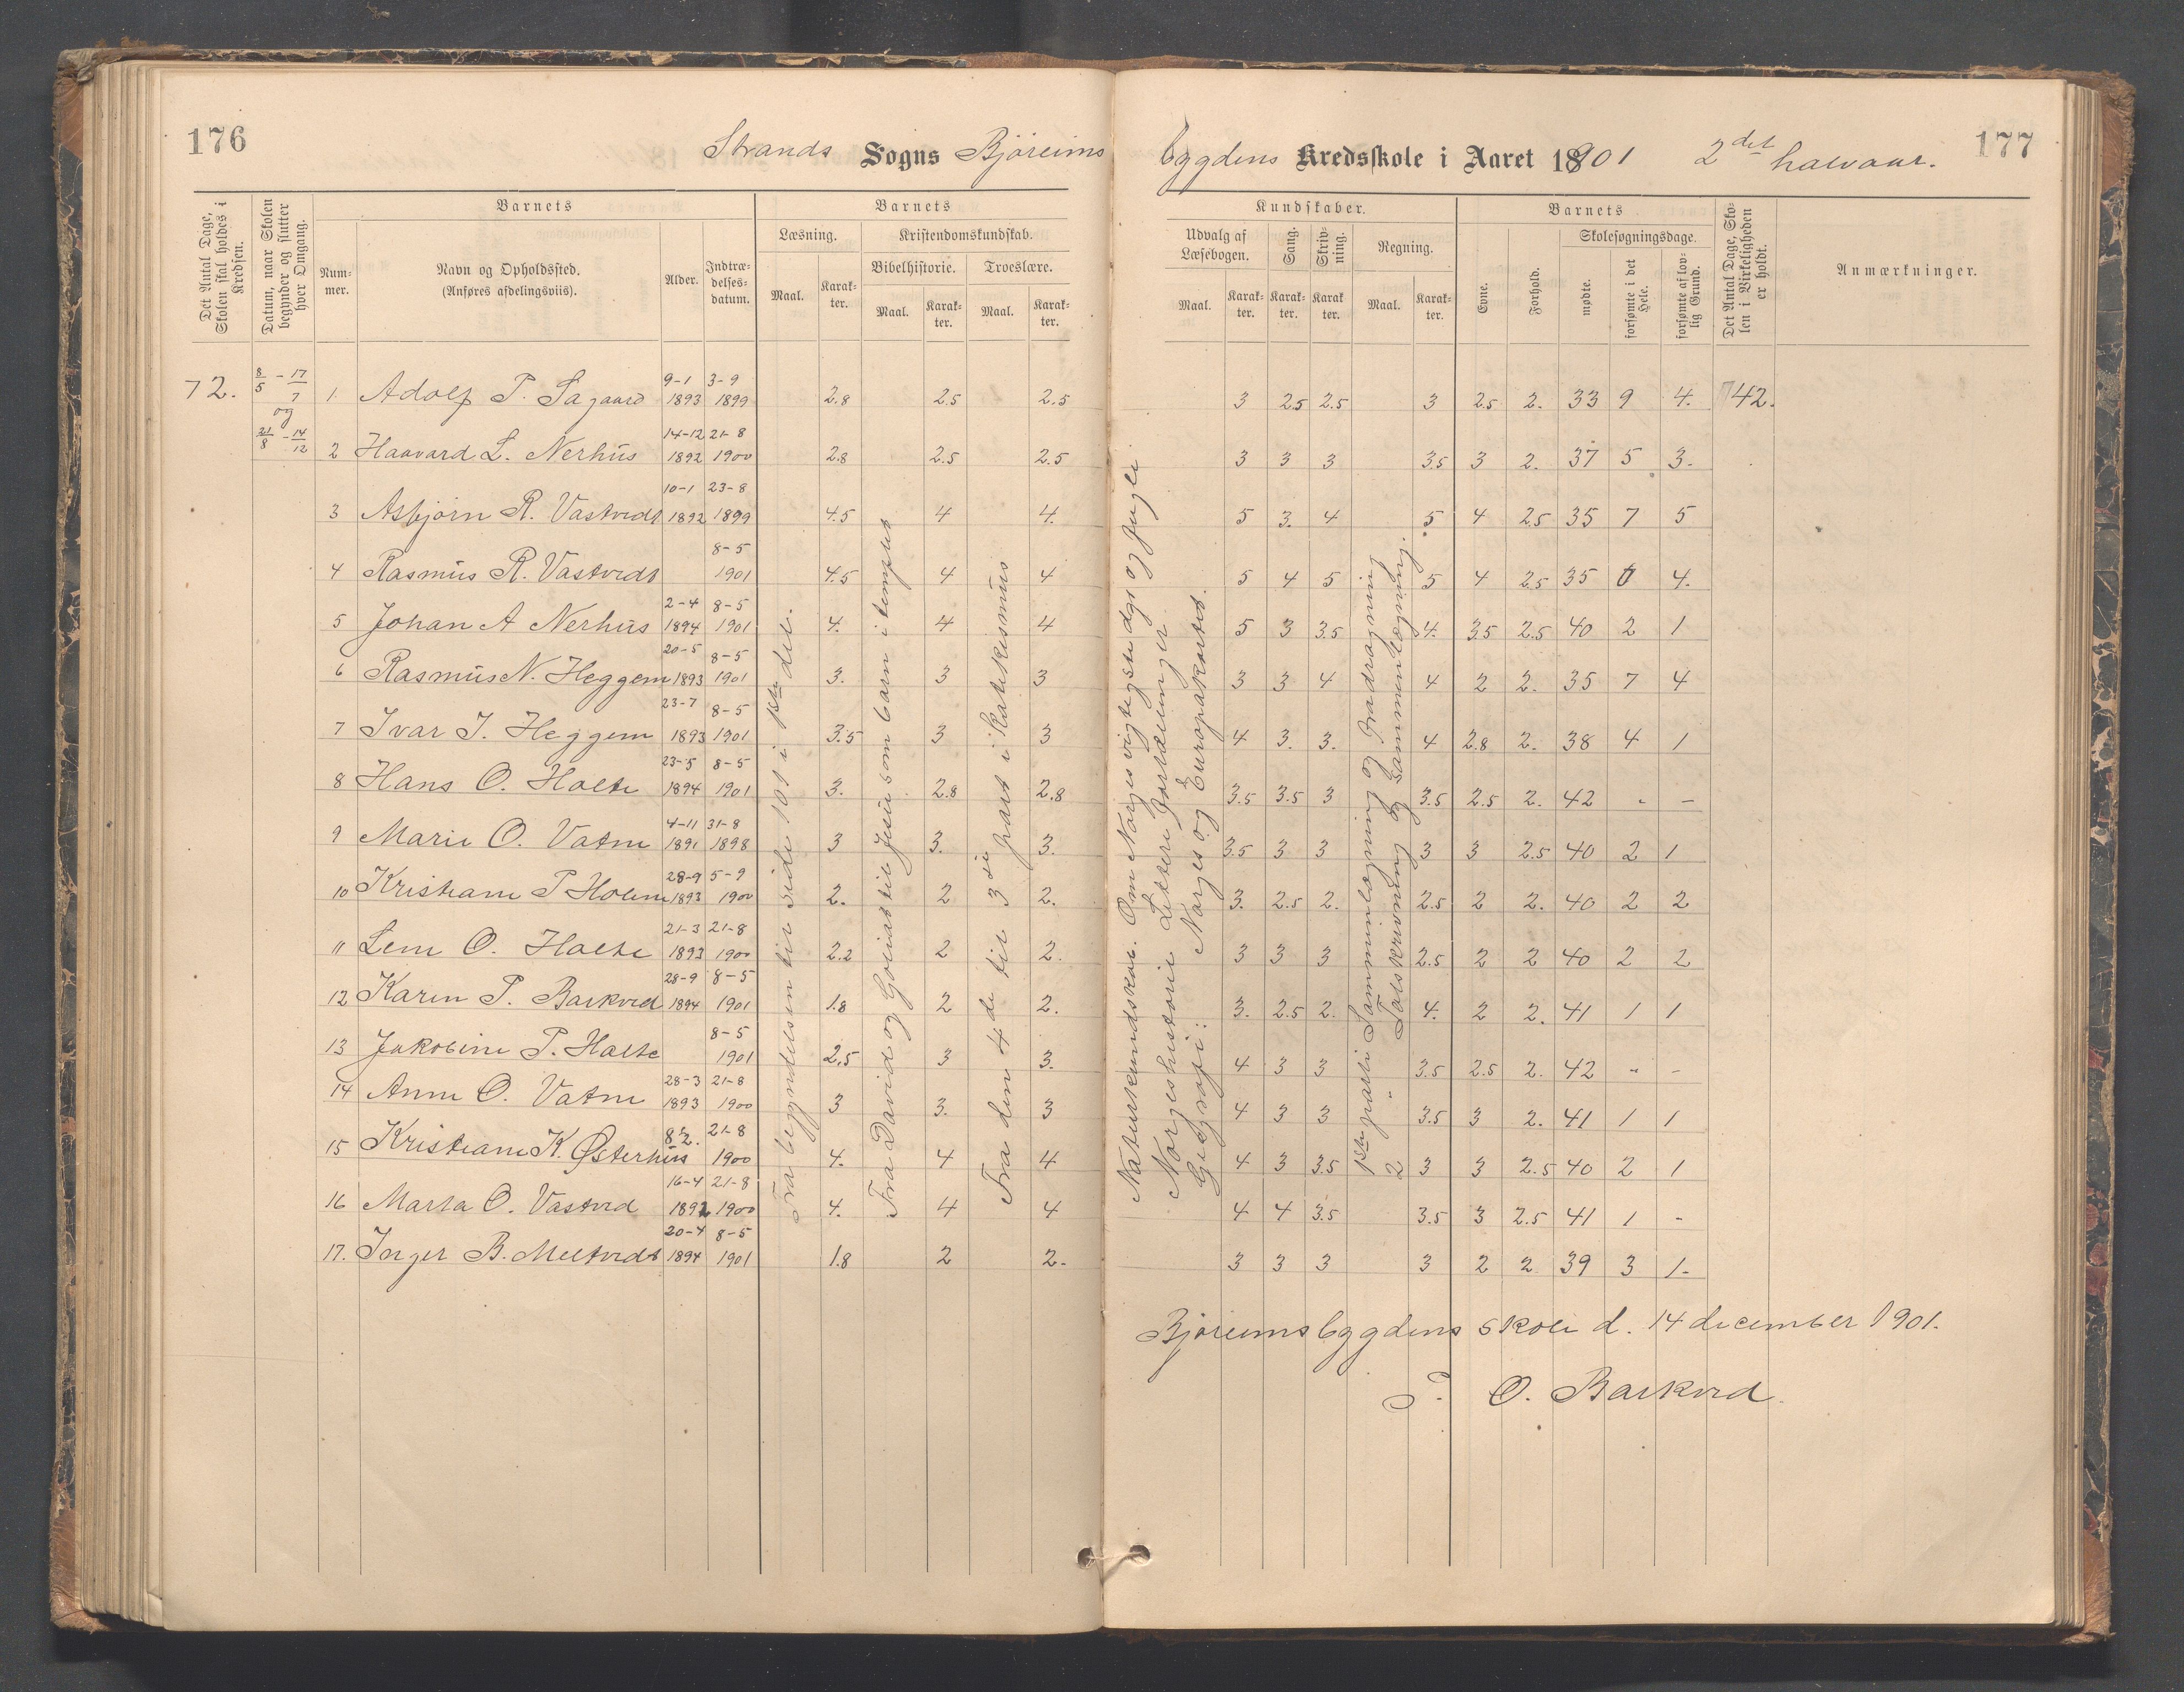 176
Strands Sogns Bjøreims
bygdens Kredsskole i Aaret 18901 2det halvaar.
177
Det Antal Dage, Skolen skal holdes i Kredsen.
Datum, naar Skolen begynder og slutter hver Omgang.
Barnets
Nummer.
Navn og Opholdssted.
(Anføres afdelingsviis).
Alder.
Indtrædelsesdatum.
Barnets
Læsning.
Maal.
Karakter.
Kristendomskundskab.
Bibelhistorie.
Maal.
Karakter.
Troeslære.
Maal.
Karakter.
Kundskaber.
Udvalg af Læsebogen.
Maal.
Karakter.
Sang.
Karakter.
Skrivning.
Karakter.
Regning.
Maal.
Karakter.
Barnets
Evne.
Forhold.
Skolesøgningsdage.
mødte.
forsømte i det Hele.
forsømte af lovlig Grund.
Det Antal Dage, Skolen i Virkeligheden er holdt.
Anmærkninger.
72. 8/5 - 17/7 og 21/8 - 14/12
1 Adolf T. Sagaard 9-1 1893 3-9 1899 2.8 2.5 2.5 3 2.5 2.5 3 2.5 2. 33 9 4. 42.
2 Haavard L. Nerhus 14-12 1892 21-8 1900 2.8 2.5 2.5 3 3 3 3.5 3 2. 37 5 3.
3 Asbjørn R. Vastvedt 10-1 1892 23-8 1899 4.5 4 4. 5 3. 4 5 4 2.5 35 7 5
4 Rasmus R. Vastvedt 8-5 1901 4.5 4 4 5 4 5 5 4 2.5 35 4.
5 Johan A Nerhus 2-4 1894 8-5 1901 4. 4 4 5 3 3.5 4. 3.5 2.5 40 2 1
6 Rasmus N. Heggem 20-5 1893 8-5 1901 3. 3 3 3 3 4 4 2 2. 35 7 4
7 Ivar I. Heggem 23-7 1893 8-5 1901 3.5 3 3 4 3. 3. 4 2.8 2. 38 4 1
8 Hans O. Holte 23-5 1894 8-5 1901 3. 2.8 2.8 3.5 3.5 3 3.5 2.5 2. 42 - -
9 Marie O. Vatne 4-11 1891 31-8 1898 3 3. 3. 3.5 3 3 3 3 2.5 40 2 1
10 Kristiane T Holme 28-9 1893 5-9 1900 2. 2 2. 3. 2.5 2. 2.5 2 2. 40 2 2
11 Lene O. Holte 21-3 1893 21-8 1900 2.2 2 2. 3 3 3 2.5 2 2 40 2 2
12 Karen T. Barkved 28-9 1894 8-5 1901 1.8 2 2. 3. 2.5 2. 4. 2 2. 41 1 1
13 Jakobine T. Holte 8-5 1901 2.5 3 3. 4 3 3 3.5 2.5 2. 42 - -
14 Anne O. Vatne 28-3 1893 21-8 1900 3 3. 3 4 3 3 3.5 3 2. 41 1 1
15 Kristiane K. Østerhus 21-8 1900 4. 4 4 4 3 3.5 3 3 2.5 40 2 1
16 Marta O. Vastved 16-4 1892 21-8 1900 4. 4 4 4 4 3.5 3.5 3 2.5 41 1 -
17. Inger B. Meltvedt 20-4 1894 8-5 1901 1.8 2 2. 3 3 3 3 2 2 39 3 1.
Fra begyndelsen til side 101 i 1ste del.
Fra David og Goliat til Jesus som barn i templet
Fra den 4de til 3die part i katekismus
Naturkundskab. Om Norges vigtigste dyr og fugle
Norgeshistorie Lettere fortællinger
Geografi: Norges og Europakartet.
1ste parti Sammenlægning og Fradragning
2 " Talskrivning og Sammenlægning.
Bjøreimsbygdens skole d. 14 december 1901.
T. O. Barkved.